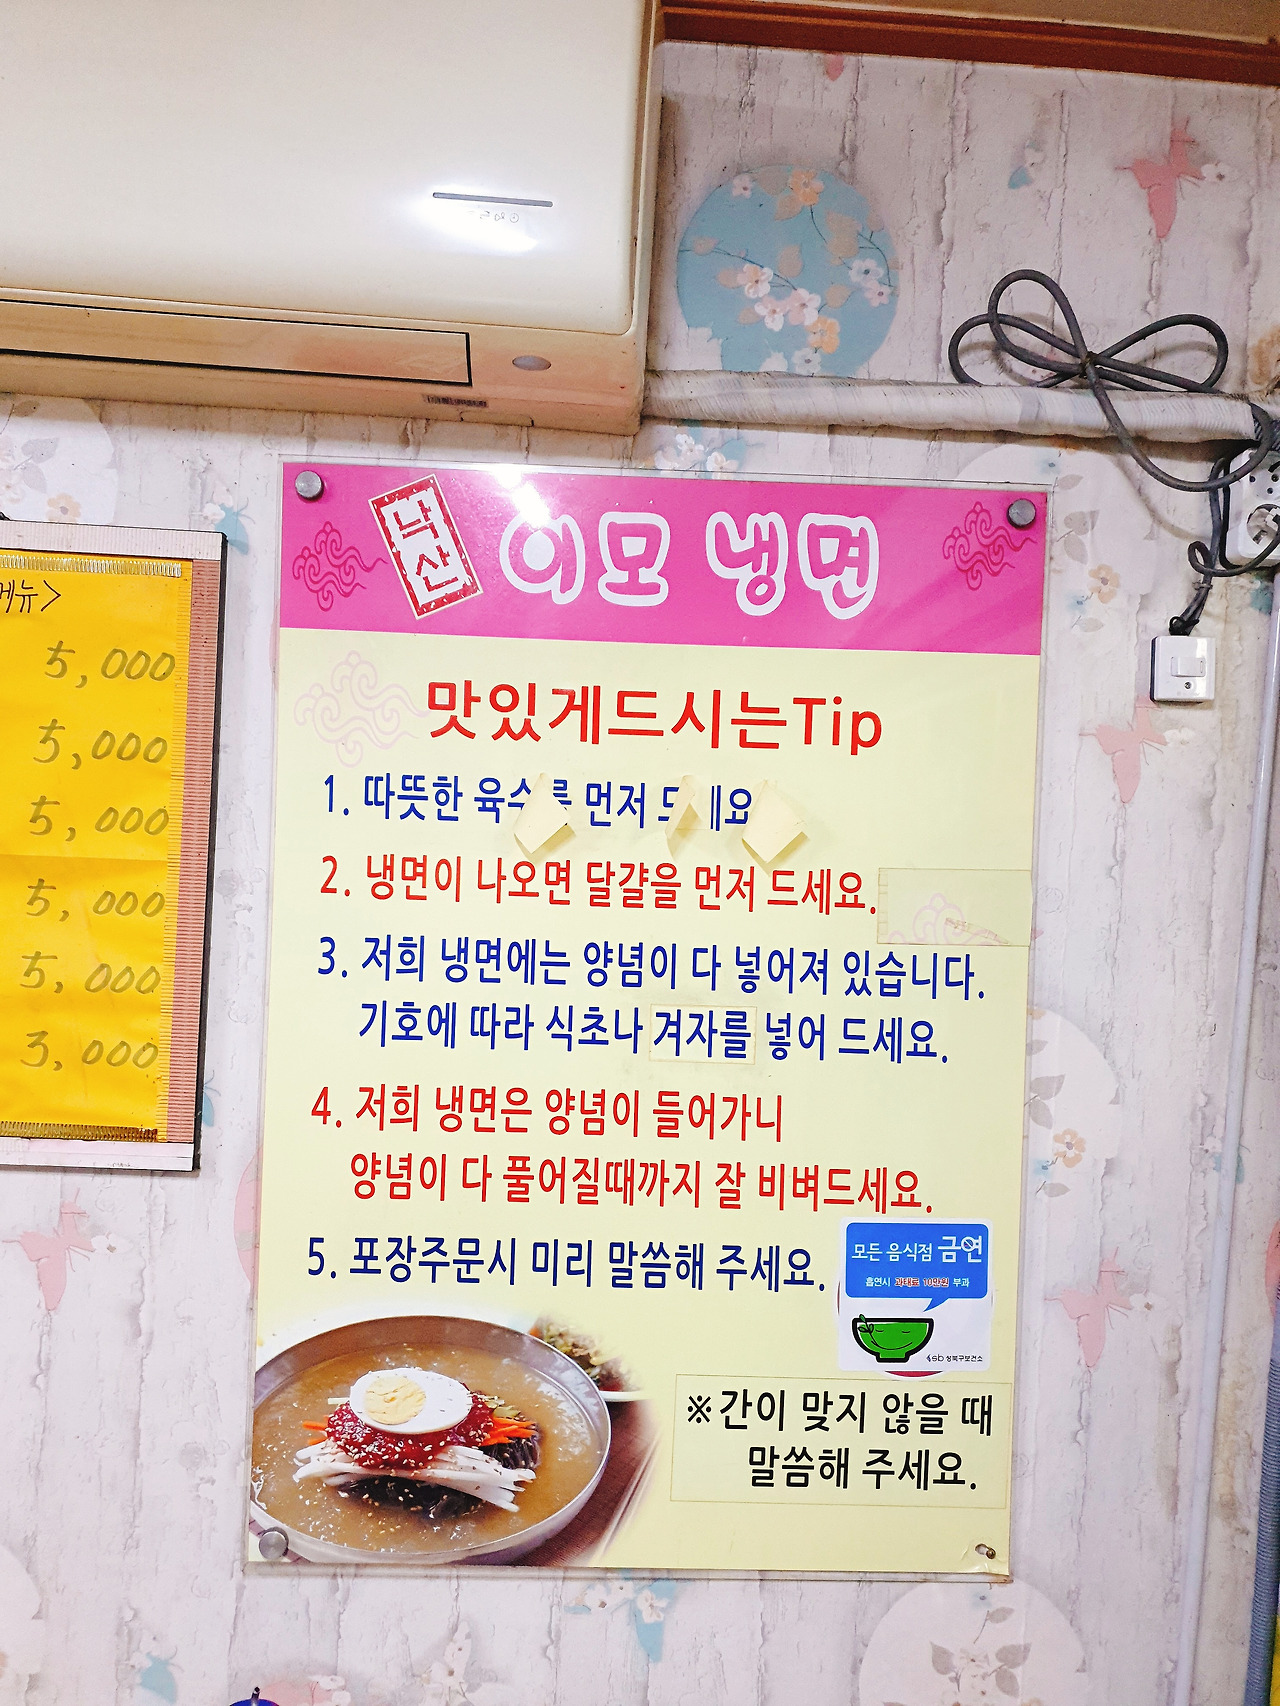 메뉴>
5,000
5,000
5,000
5,000
5,000
3,000
낙산
이모 냉면
맛있게드시는Tip
1. 따뜻한 육수를 먼저
2. 냉면이 나오면 달걀을 먼저 드세요.
3. 저희 냉면에는 양념이 다 넣어져 있습니다.
기호에 따라 식초나 겨자를 넣어 드세요.
4. 저희 냉면은 양념이 들어가니
양념이 다 풀어질때까지 잘 비벼드세요.
5. 포장주문시 미리 말씀해 주세요.
모든 음식점 금연
흡연시 과태료 10만원 부과
sb 성북구보건소
※간이 맞지 않을 때
말씀해 주세요.